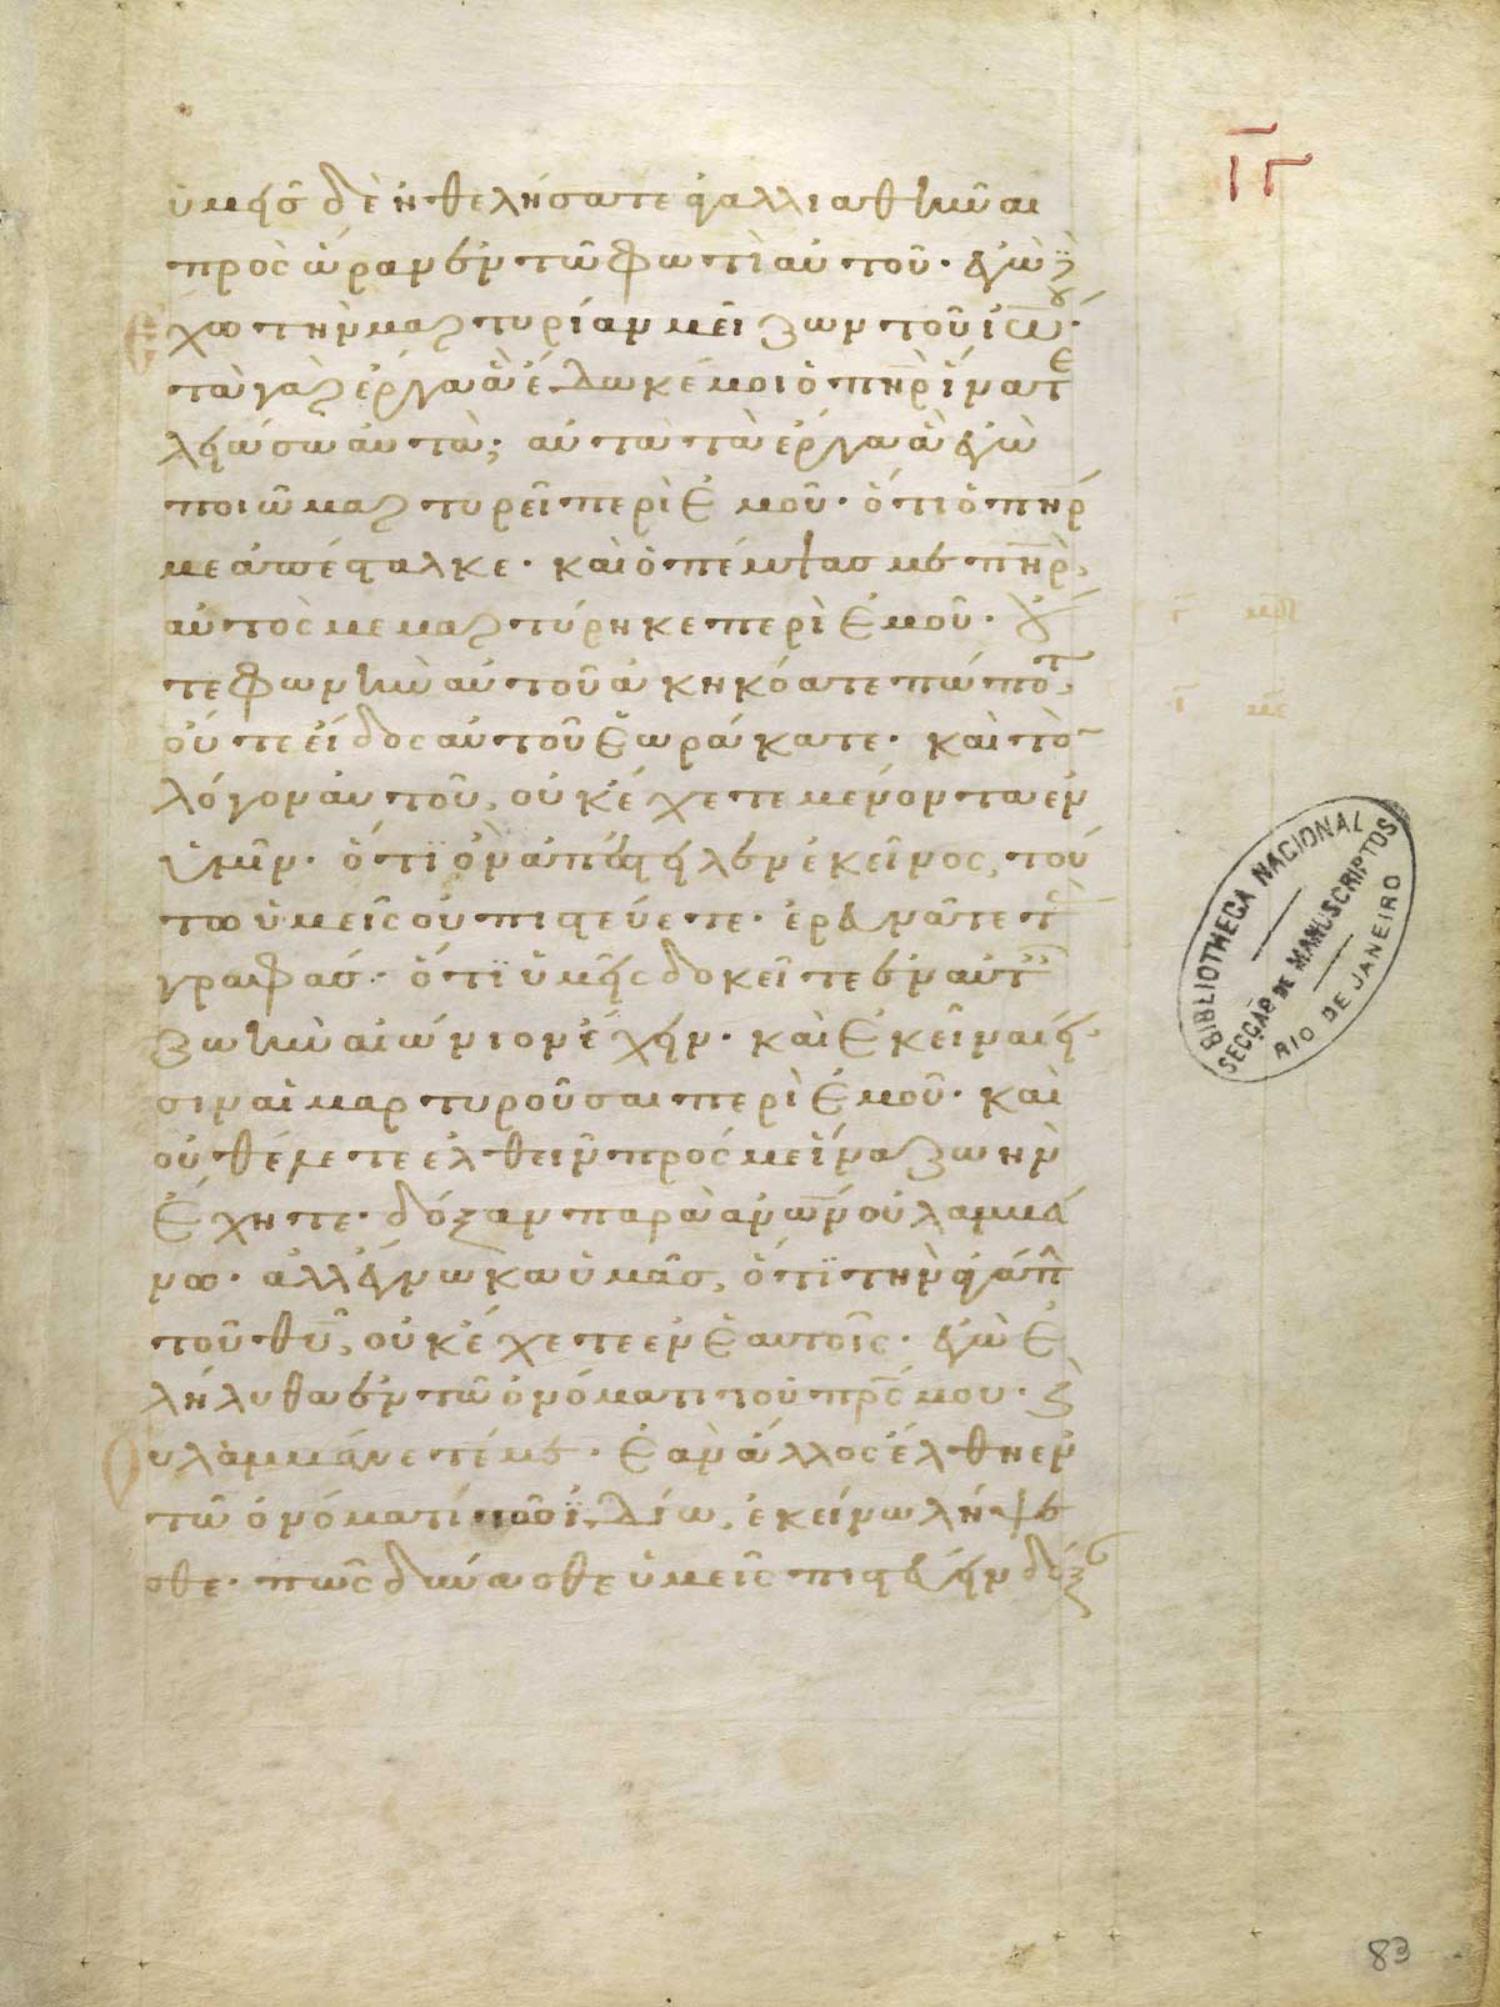 ὑμεῖς δὲ ἠθελήσατε ἀγαλλιαθῆναι
πρὸς ὥραν ἐν τῶ φωτὶ αὐτοῦ. ἐγὼ ἔ
χω τὴν μαρτυρίαν μείζων τοῦ ἰω̅ου.
τὰ γὰρ ἔργα ἃ ἔδωκέ μοι ὁ π̅η̅ρ ἵνα τε
λειώσω αὐτὰ; αὐτὰ τὰ ἔργα ἃ ἐγὼ
ποιῶ μαρτυρεῖ περὶ ἐμοῦ. ὅτι ὁ π̅η̅ρ
με ἀπέσταλκε. καὶ ὁ πέμψας με π̅η̅ρ,
αὐτὸς μεμαρτύρηκε περὶ ἐμοῦ. οὔ
τε φωνὴν αὐτοῦ ἀκηκόατε πώποτε,
οὔτε εἶδος αὐτοῦ ἑωράκατε. καὶ τὸν
λόγον αὐτοῦ, οὐκ ἔχετε μένοντα ἐν
ὑμῖν. ὅτι ὃν ἀπέστειλεν ἐκεῖνος, τού
τω ὑμεῖς οὐ πιστεύετε. ἐρευνᾶτε τὰς
γραφάς. ὅτι ὑμεῖς δοκεῖτε ἐν αὐταῖς
ζωὴν αἰώνιον ἔχειν. καὶ ἐκεῖναι εἰ
σιν αἱ μαρτυροῦσαι περὶ ἐμοῦ. καὶ
οὐ θέλετε ἐλθεῖν πρός με ἵνα ζωὴν
ἔχητε. δόξαν παρὰ ἀν̅ω̅ν οὐ λαμβά
νω. ἀλλ ἔγνωκα ὑμᾶς, ὅτι τὴν ἀγάπην
τοῦ θ̅υ̅, οὐκ ἔχετε ἐν ἑαυτοῖς. ἐγὼ ἐ
λήλυθα ἐν τῶ ὀνόματι τοῦ π̅ρ̅ς μου. καὶ
οὐ λαμβάνετέ με. ἐὰν ἄλλος ἔλθη ἐν
τῶ ὀνόματι τῶ ἰδίω, ἐκεῖνω λήψε
σθε. πῶς δύνασθε ὑμεῖς πιστεύειν δόξαν
ΙΓ
BIBLIOTHECA NACIONAL
SECÇÃO DE MANUSCRIPTOS
RIO DE JANEIRO
83